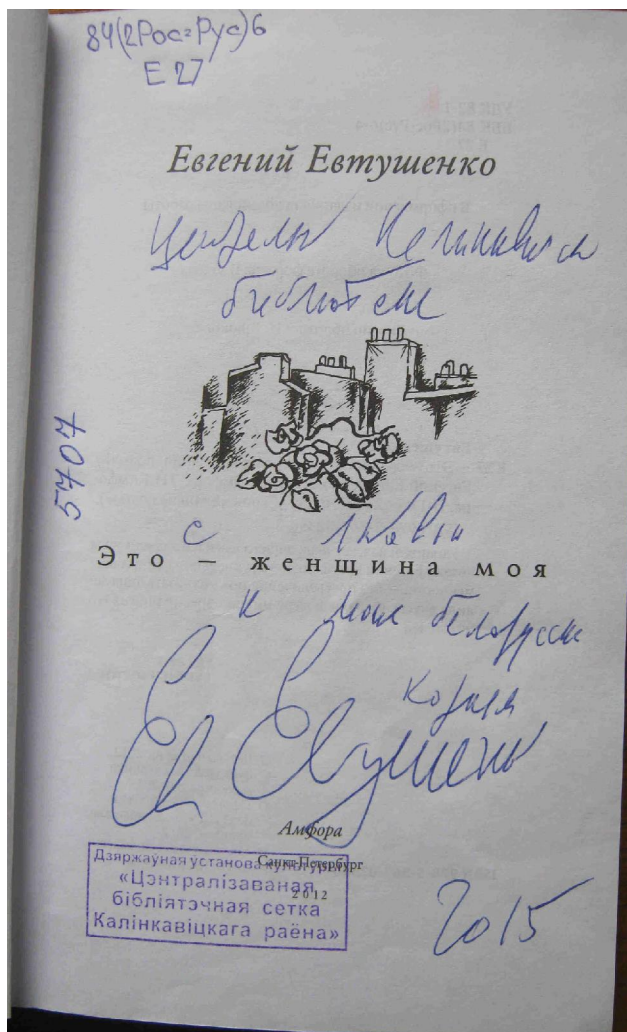 84(2Рос=Рус)6
Е 27
Евгений Евтушенко
библиотеке
5707
с любовью
Это – женщина моя
к моим белорусским
корням
Амфора
Санкт-Петербург
2012
Дзяржаўная ўстанова культуры
«Цэнтралізаваная
бібліятэчная сетка
Калінкавіцкага раёна»
2015